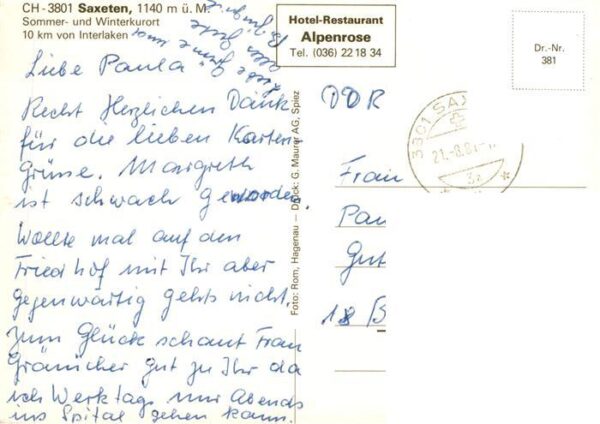 CH-3801 Saxeten, 1140 m ü. M.
Sommer- und Winterkurort
10 km von Interlaken
Hotel-Restaurant
Alpenrose
Tel. (036) 22 18 34
Dr.-Nr.
381
Liebe Paula
Recht Herzlichen Dank
für die lieben Karten
Grüsse. Margreth
ist schwach geworden.
Wollte mal auf den
Friedhof mit Ihr aber
gegenwärtig gehts nicht.
Zum Glück schaut Frau
gut zu Ihr da
ich Werktags nur Abends
ins Spital gehen kann.
Foto: Rom, Hagenau — Druck: G. Maurer AG, Spiez
DDR
3801 SAX
Frau
Pau
Gut
18 B